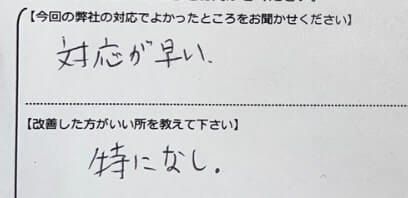 【今回の弊社の対応でよかったところをお聞かせください】
対応が早い.
【改善した方がいい所を教えて下さい】
特になし.